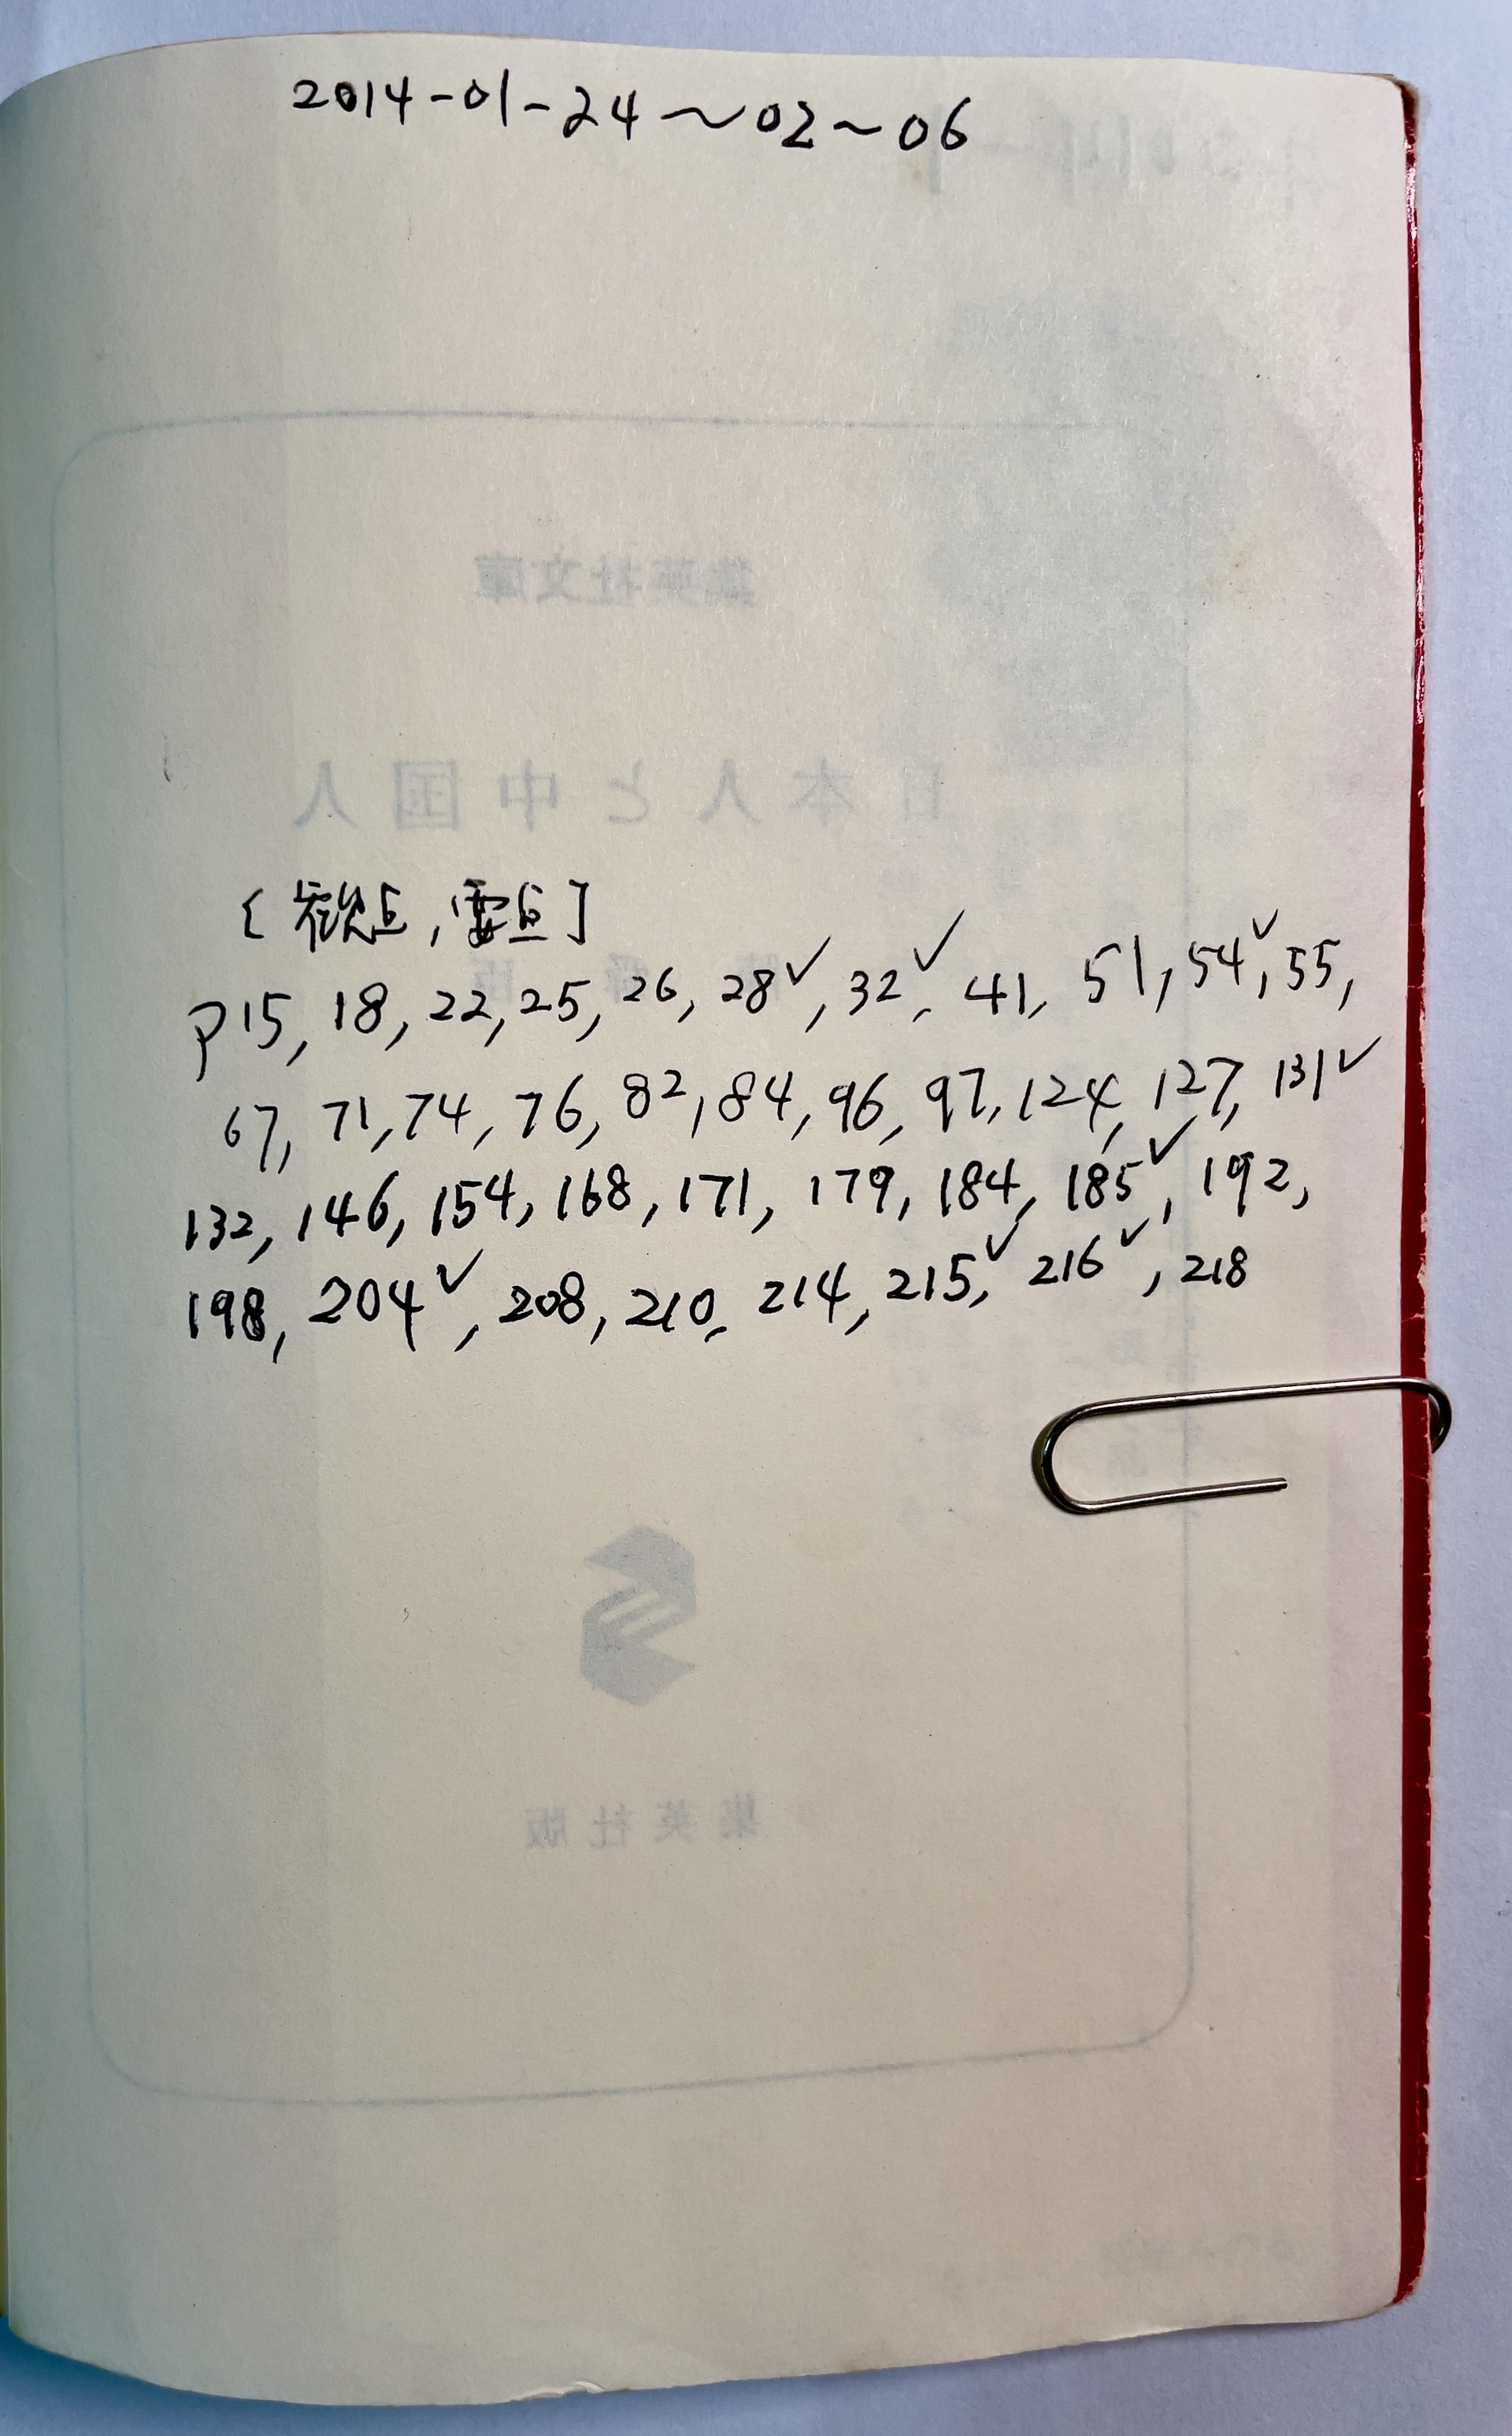 2014-01-24～02～06
集英社文庫
日本人と中国人
P15, 18, 22, 25, 26, 28✓, 32✓, 41, 51, 54✓, 55,
67, 71, 74, 76, 82, 84, 96, 97, 124, 127, 131✓
132, 146, 154, 168, 171, 179, 184, 185✓, 192,
198, 204✓, 208, 210, 214, 215✓, 216✓, 218
集英社版